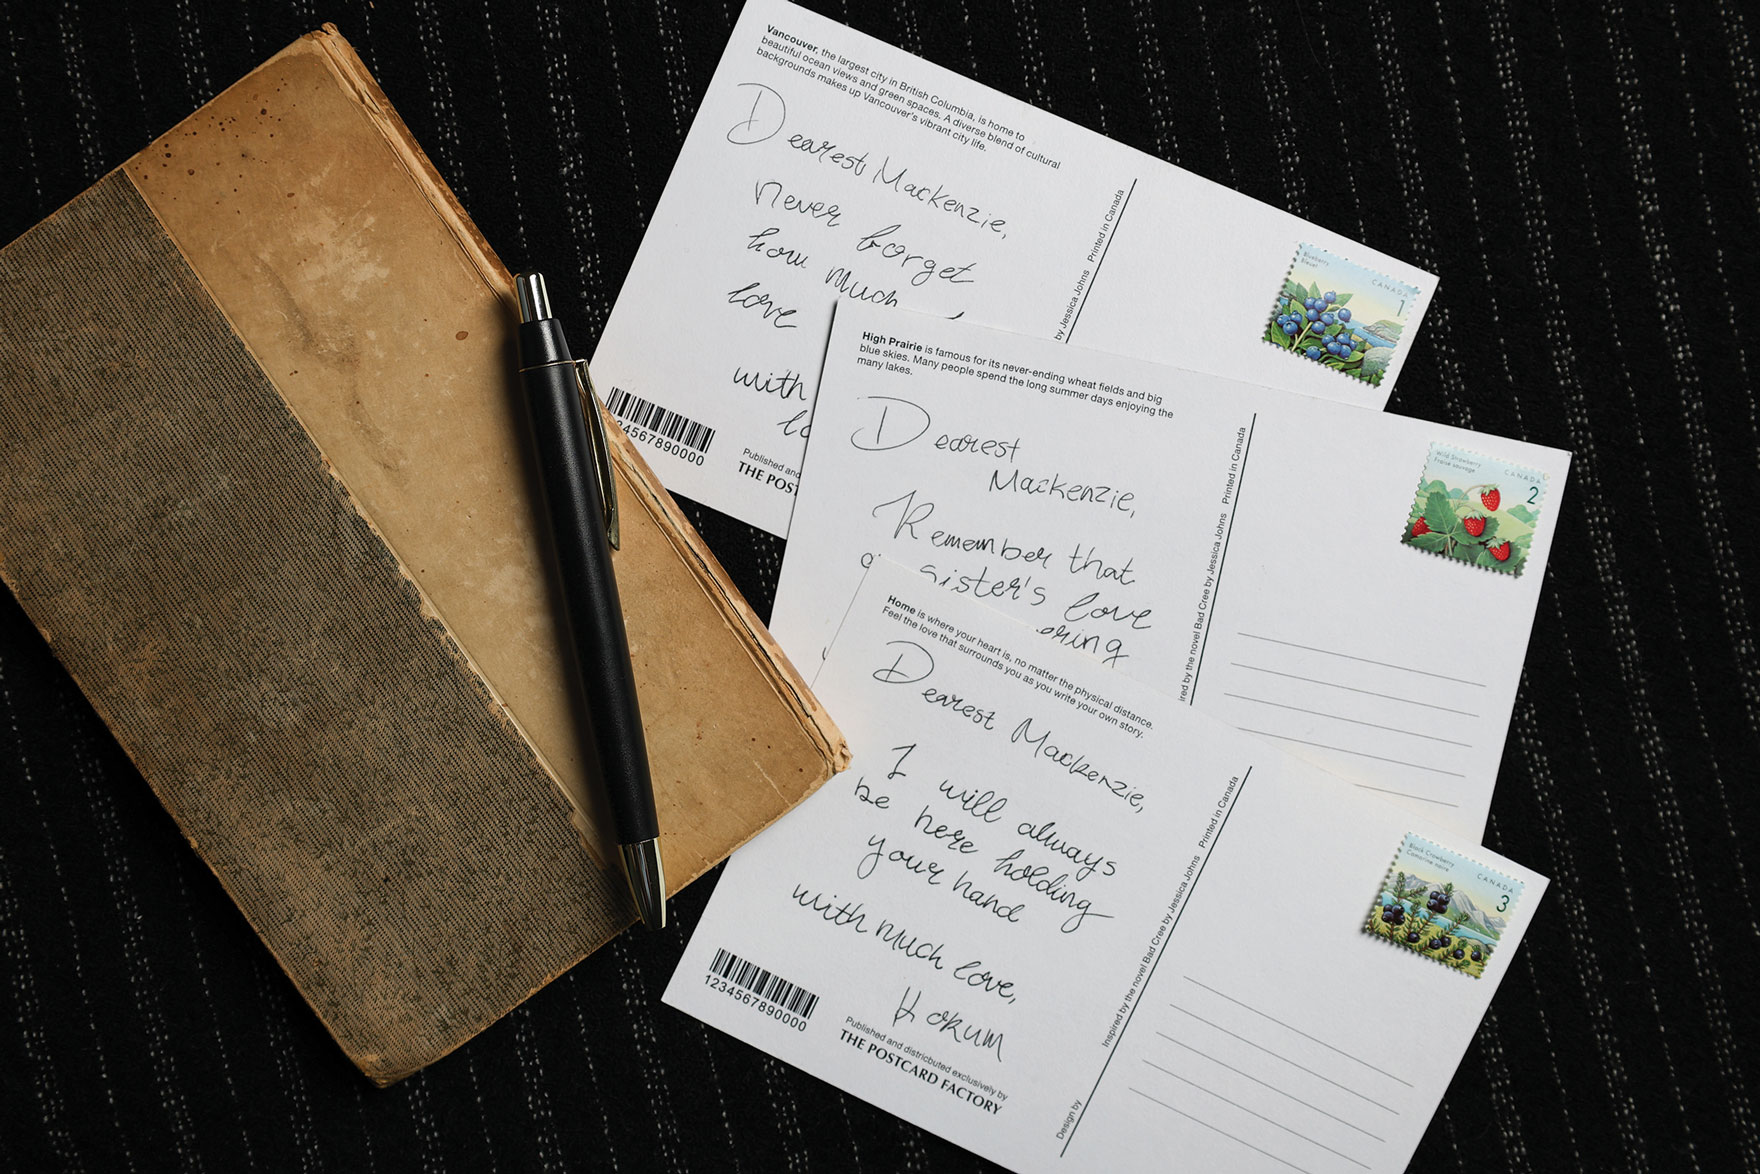 Vancouver, the largest city in British Columbia, is home to
beautiful ocean views and green spaces. A diverse blend of cultural
backgrounds makes up Vancouver's vibrant city life.
Dearest Mackenzie,
never forget
how much
love
with
234567890000
Published and
THE POST
by Jessica Johns Printed in Canada
Blueberry
Bleuet
CANADA
1
High Prairie is famous for its never-ending wheat fields and big
blue skies. Many people spend the long summer days enjoying the
many lakes.
Dearest
Mackenzie,
Remember that
a sister's love
ering
ired by the novel Bad Cree by Jessica Johns Printed in Canada
Wild Strawberry
Fraise sauvage
CANADA
2
Home is where your heart is, no matter the physical distance.
Feel the love that surrounds you as you write your own story.
Dearest Mackenzie,
I will always
be here holding
your hand
with much love,
Kokum
1234567890000
Published and districbuted exclusively by
THE POSTCARD FACTORY
Design by
Inspired by the novel Bad Cree by Jessica Johns Printed in Canada
Black Crowberry
Camarine noire
CANADA
3